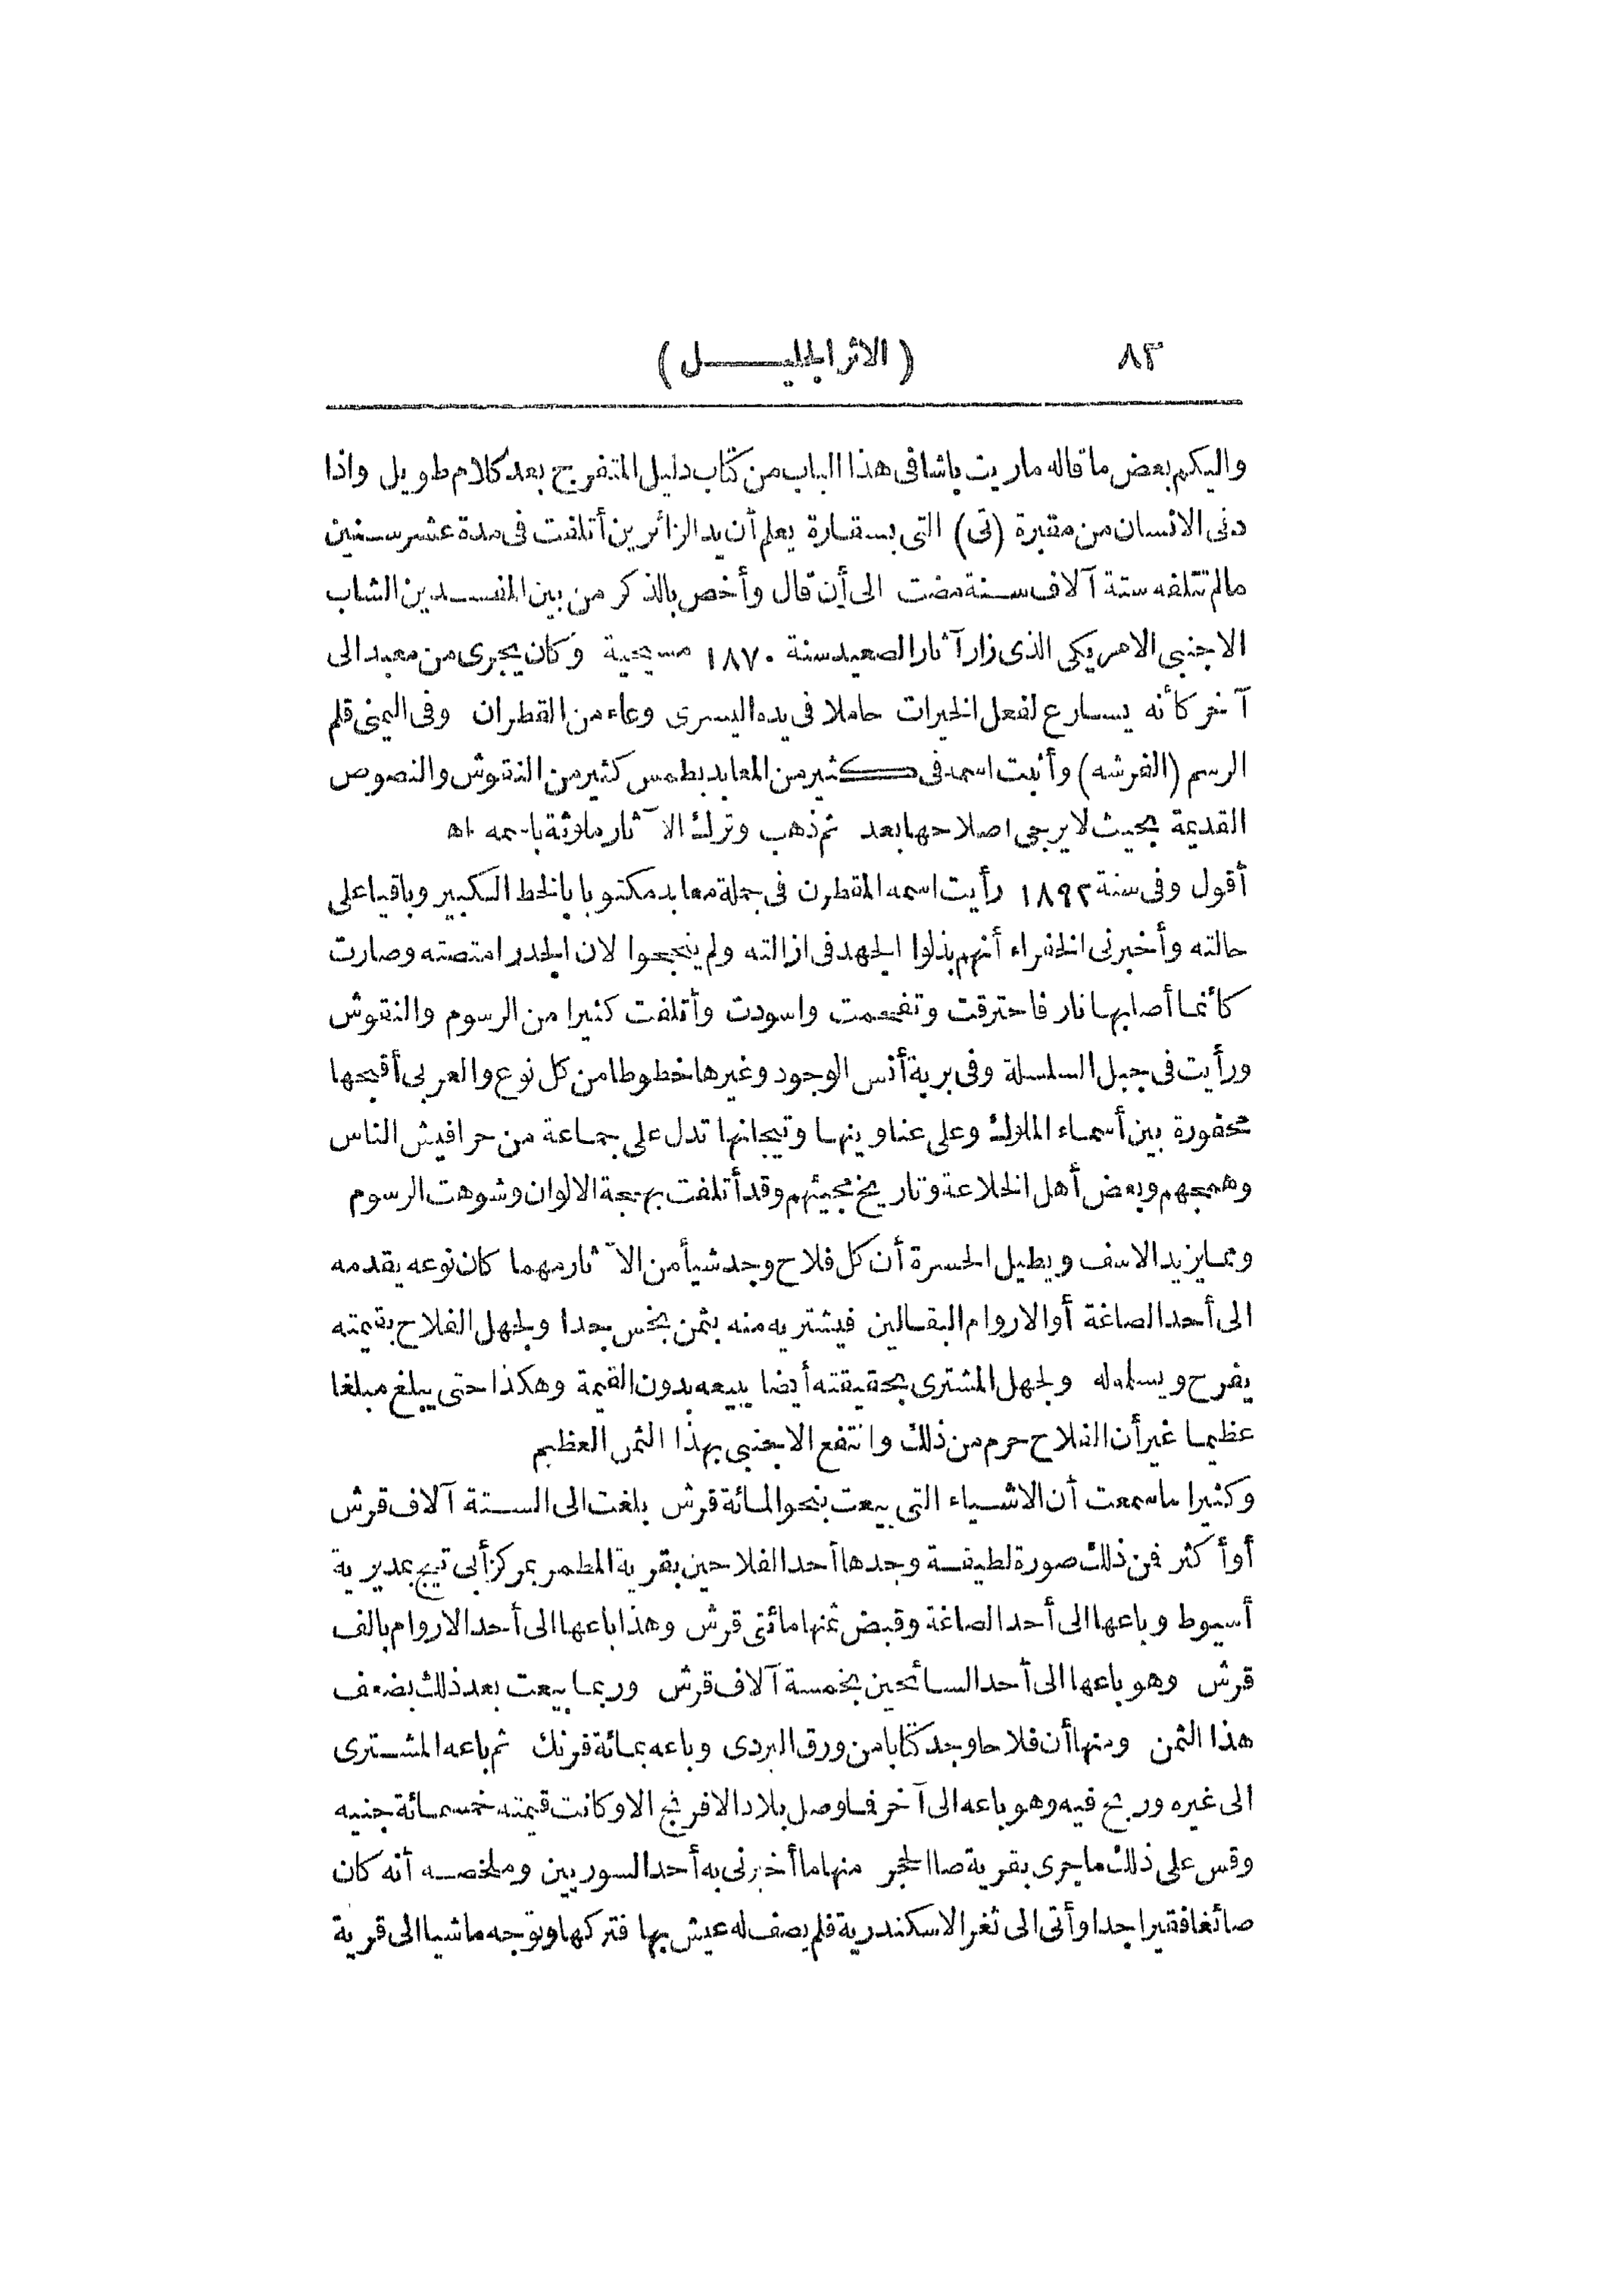 ٨٢ (الاثر الجليل)
واليكم بعض ما قاله ماريت باشا فى هذا الباب من كتاب دليل المتفرج بعد كلام طويل واذا
دنى الانسان من مقبرة (تى) التى بسقارة يعلم أن يد الزائرين أتلفت فى مدة عشر سنين
مالم تتلفه ستة آلاف سنة مضت الى أن قال وأخص بالذكر من بين المفسدين الشاب
الاجنبى الامريكى الذى زار آثار الصعيد سنة ١٨٧٠ مسيحية وكان يجرى من معبد الى
آخر كأنه يسارع لفعل الخيرات حاملا فى يده اليسرى وعاء من القطران وفى اليمنى قلم
الرسم (الفرشه) وأثبت اسمه فى كثير من المعابد بطمس كثير من النقوش والنصوص
القديمة بحيث لا يرجى اصلاحها بعد ثم ذهب وترك الآثار ملوثة باسمه اه
أقول وفى سنة ١٨٩٢ رأيت اسمه المقطرن فى جملة معابد مكتوبا بالخط الكبير وباقيا على
حالته وأخبرنى الخفراء أنهم بذلوا الجهد فى ازالته ولم ينجحوا لان الجدر امتصته وصارت
كأنما أصابها نار فاحترقت وتفحمت واسودت وأتلفت كثيرا من الرسوم والنقوش
ورأيت فى جبل السلسلة وفى بربة أنس الوجود وغيرها خطوطا من كل نوع والعربى أقبحها
محفورة بين أسماء الملوك وعلى عناوينها وتيجانها تدل على جماعة من حرافيش الناس
وهمجهم وبعض أهل الخلاعة وتاريخ مجيئهم وقد أتلفت بهجة الالوان وشوهت الرسوم
ومما يزيد الاسف ويطيل الحسرة أن كل فلاح وجد شيأ من الآثار مهما كان نوعه يقدمه
الى أحد الصاغة أو الاروام البقالين فيشتريه منه بثمن بخس جدا ولجهل الفلاح بقيمته
يفرح ويسلمه له ولجهل المشترى بحقيقته أيضا يبيعه بدون القيمة وهكذا حتى يبلغ مبلغا
عظيما غير أن الفلاح حرم من ذلك وانتفع الاجنبى بهذا الثمن العظيم
وكثيرا ما سمعت أن الاشياء التى بيعت بنحو المائة قرش بلغت الى الستة آلاف قرش
أو أكثر فمن ذلك صورة لطيفة وجدها أحد الفلاحين بقرية المطمر بمركز أبى تيج بمديرية
أسيوط وباعها الى أحد الصاغة وقبض ثمنها مائتى قرش وهذا باعها الى أحد الاروام بالف
قرش وهو باعها الى أحد السائحين بخمسة آلاف قرش وربما بيعت بعد ذلك بضعف
هذا الثمن ومنها أن فلاحا وجد كتابا من ورق البردى وباعه بمائة فرنك ثم باعه المشترى
الى غيره وربح فيه وهو باعه الى آخر فما وصل بلاد الافرنج الا وكانت قيمته خمسمائة جنيه
وقس على ذلك ما جرى بقرية صا الحجر منها ما أخبرنى به أحد السوريين وملخصه أنه كان
صائغا فقيرا جدا وأتى الى ثغر الاسكندرية فلم يصف له عيش بها فتركها وتوجه ماشيا الى قرية